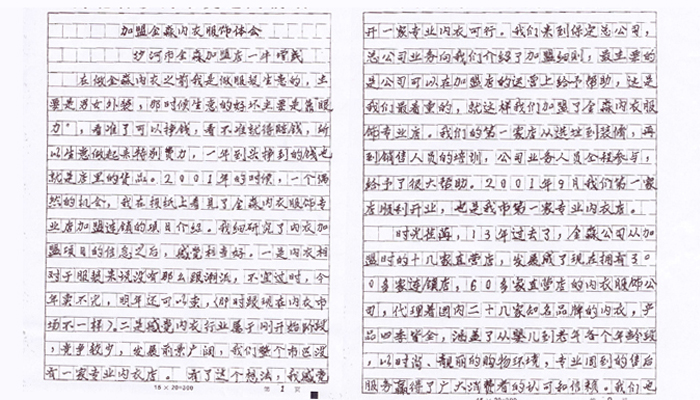 加盟金淼内衣服饰体会
沙河市金淼加盟店一牛嘴戓
在做金淼内衣之前我是做服装生意的，主
要是男女外装，那时候生意的好坏主要是靠眼
力"，看准了可以挣钱，看不准就得赔钱，所
以生意做起来特别费力，一年到头挣到的钱也
就是店里的货品。2001年的时候，一个偶
然的机会，我在报纸上看见了金淼内衣服饰专
业店加盟连锁的项目介绍。我细研究了内衣加
盟项目的信息之后，感觉相当好。一是内衣相
对于服装来说没有那么跟潮流，不宜过时，今
年卖不完，明年还可以卖，（那时跟现在内衣市
场不一样）二是感觉内衣行业属于刚开始阶段
，竞争较少，发展前景广阔，我们整个市区没
有一家专业内衣店。有了这个想法，我感觉
15×20=300 第 1 页
开一家专业内衣可行。我们来到保定总公司，
总公司业务向我们介绍了加盟细则，最主要的
是公司可以在加盟店的运营上给予帮助，这是
我们最看重的，就这样我们加盟了金淼内衣服
饰专业店。我们的第一家店从选址到装修，再
到销售人员的培训，公司业务人员全程参与，
给予了很大帮助。2001年9月我们第一家
店顺利开业，也是我市第一家专业内衣店。
时光荏苒，13年过去了，金淼公司从加
盟时的十几家直营店，发展成了现在拥有30
0多家连锁店，60多家直营店的内衣服饰公
司，代理着国内二十几家知名品牌的内衣，产
品四季皆全，涵盖了从婴儿到老年各个年龄段
，以时尚、靓丽的购物环境，专业周到的售后
服务赢得了广大消费者的认可和信赖。我们也
15×20=300